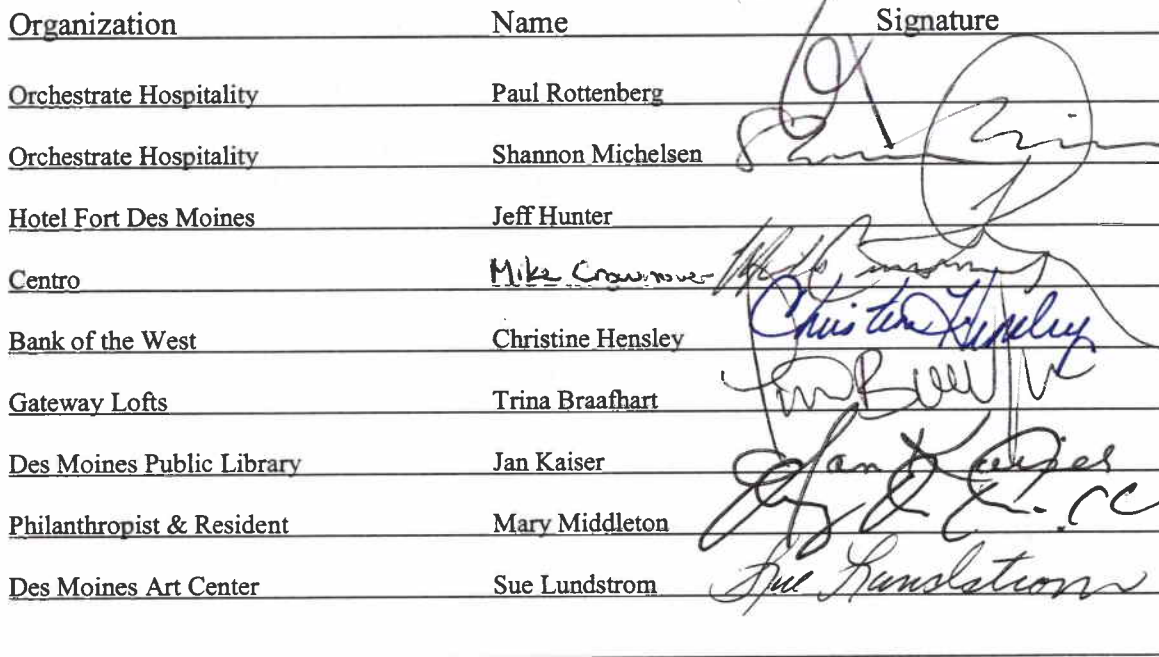 Organization Name Signature
Orchestrate Hospitality Paul Rottenberg
Orchestrate Hospitality Shannon Michelsen
Hotel Fort Des Moines Jeff Hunter
Centro Mike Crownover
Bank of the West Christine Hensley Christine Hensley
Gateway Lofts Trina Braafhart
Des Moines Public Library Jan Kaiser Jan Kaiser
Philanthropist & Resident Mary Middleton
Des Moines Art Center Sue Lundstrom Sue Lundstrom